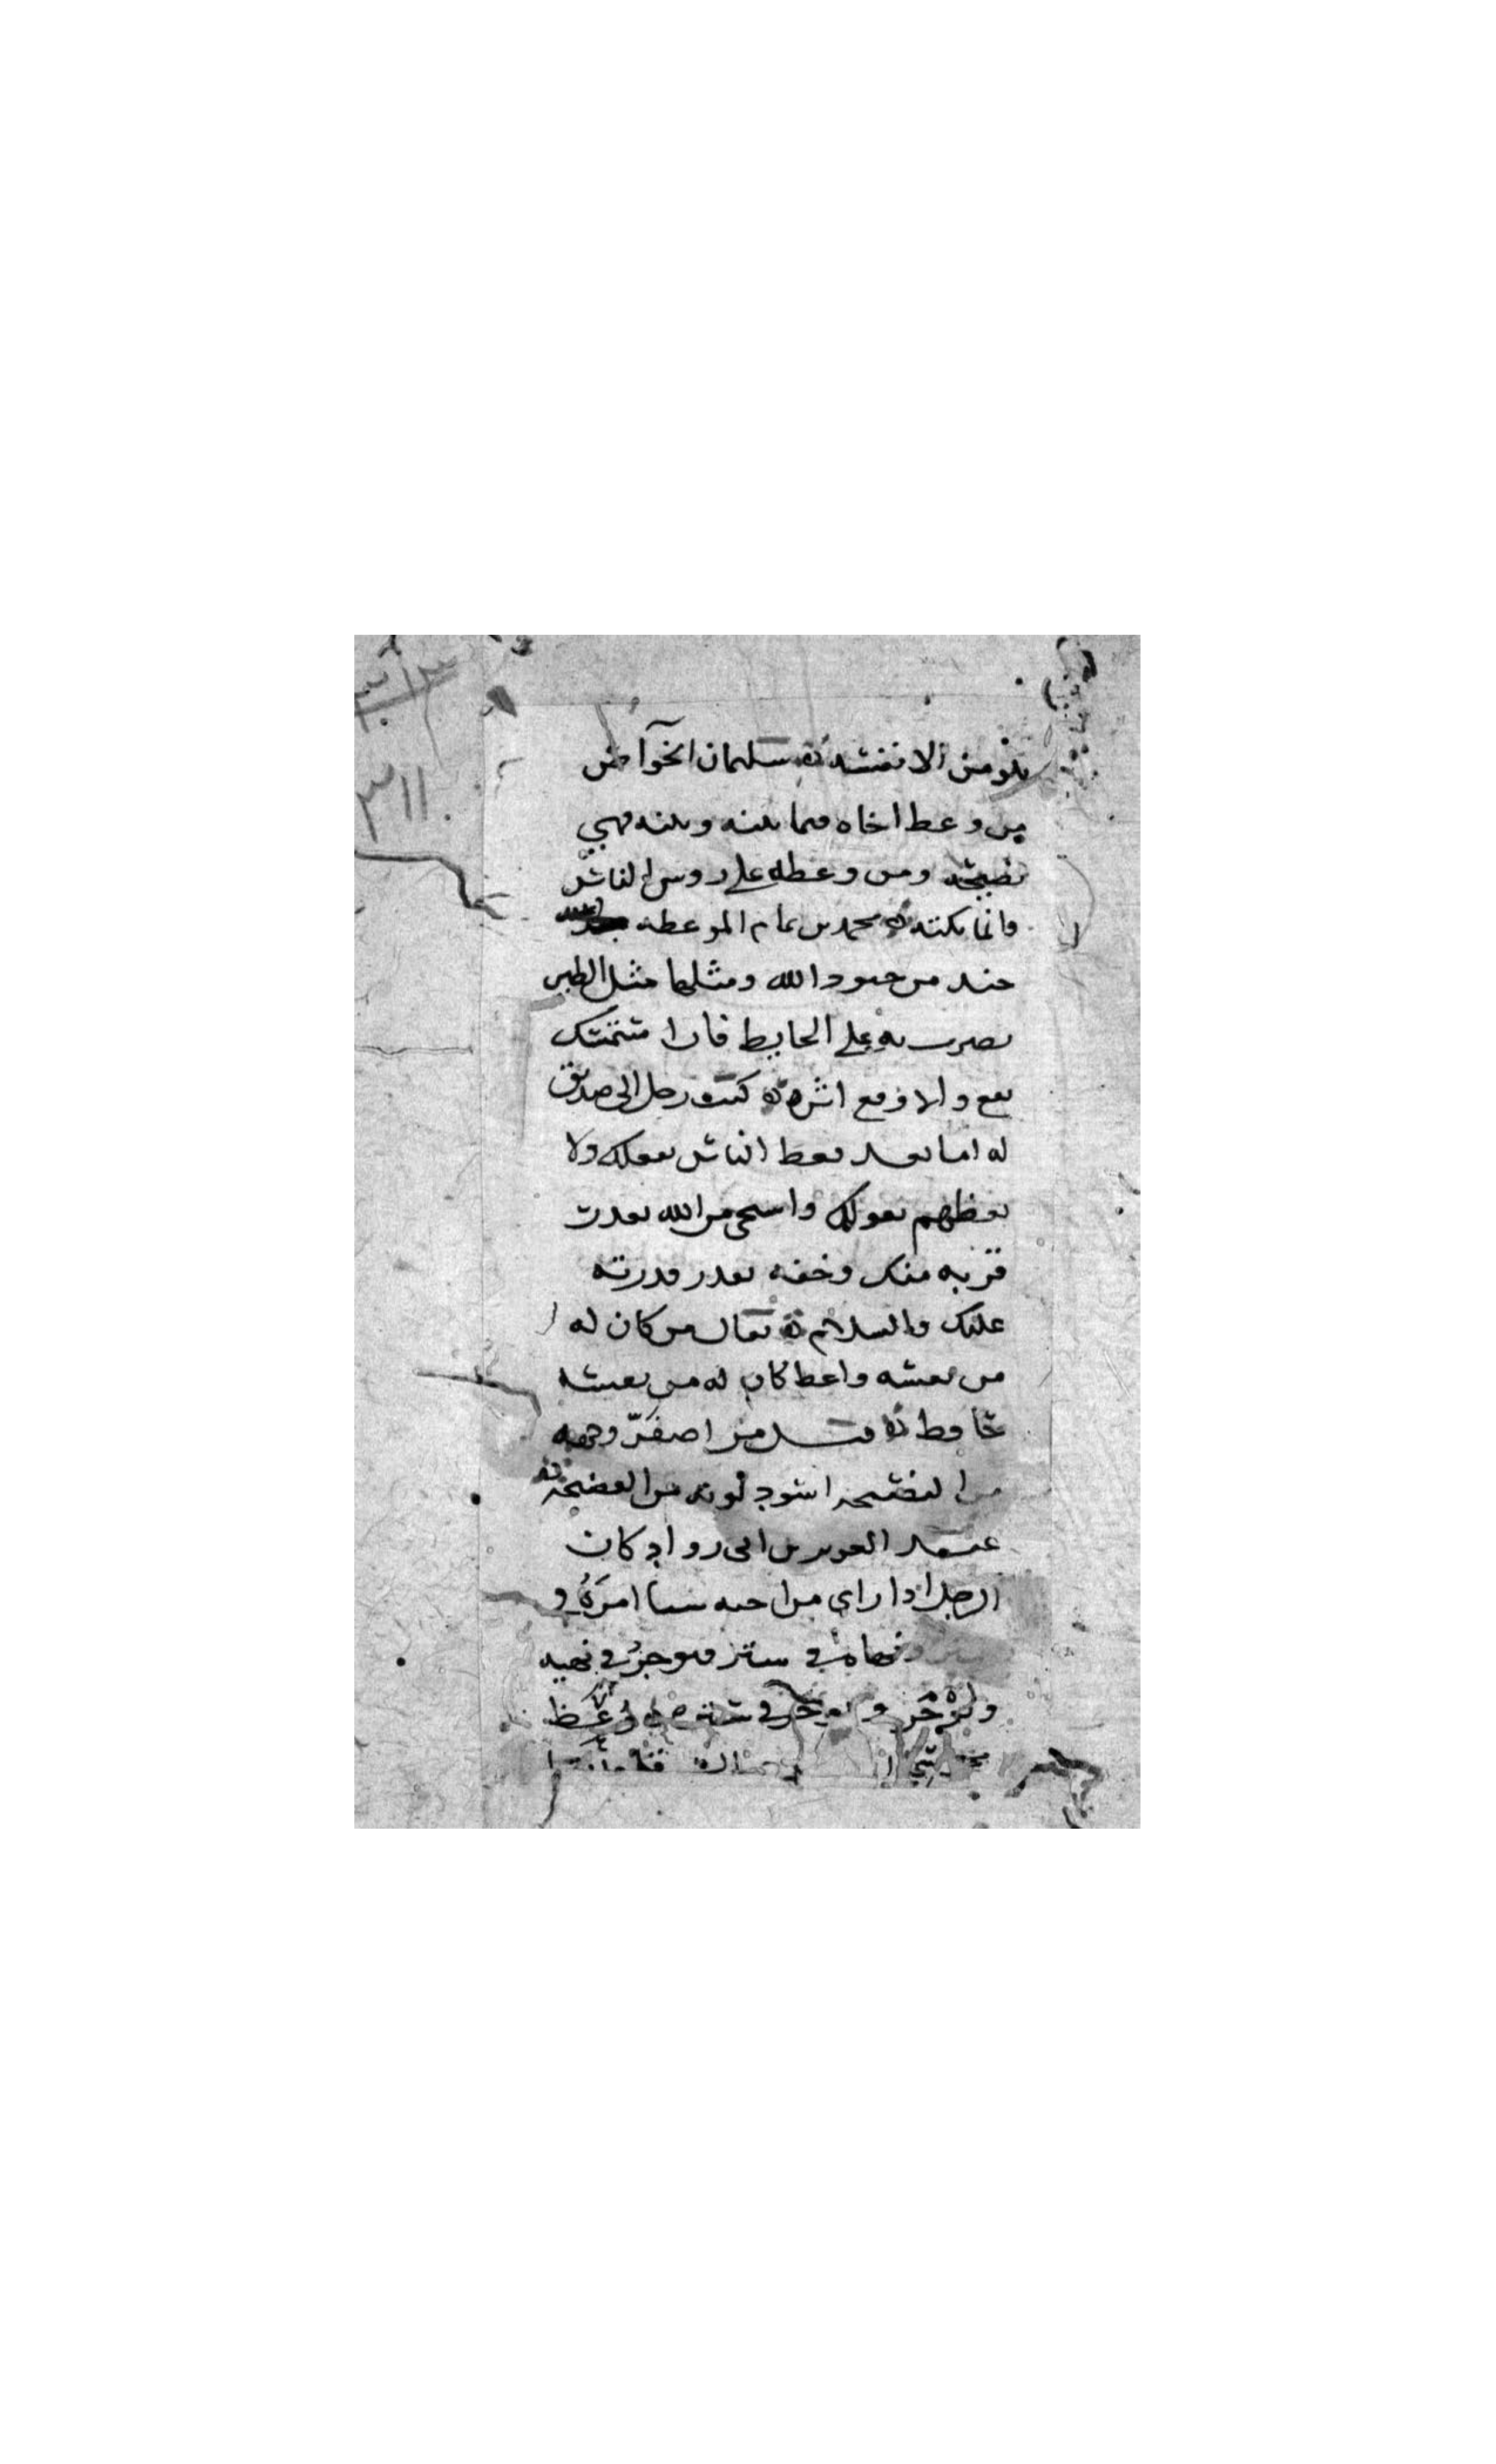 يلومن الا نفسه ه سليمان الخواص
من وعظ اخاه فيما بينه وبينه فهي
نصيحة ومن وعظه على روس الناس
فانما بكته ه محمد بن تمام الموعظة
جند من جنود الله ومثلها مثل الطين
يضرب به على الحايط فان استمسك
نفع والا وقع اثره ه كتب رجل الى صديق
له اما بعد فعظ الناس بفعلك ولا
تعظهم بقولك واستحي من الله بقدر
قربه منك وخفه بقدر قدرته
عليك والسلام ه يقال من كان له
من نفسه واعظ كان له من نفسه
حافظ ه قيل من اصفر وجهه
من النصيحة اسود لونه من الفضيحة ه
عبد العزيز بن ابي رواد كان
الرجل اذا راى من اخيه شيئا امره
في ستر ونهاه في ستر فيوجر في نهيه
ويوجر في ستره وعظ
٣١١